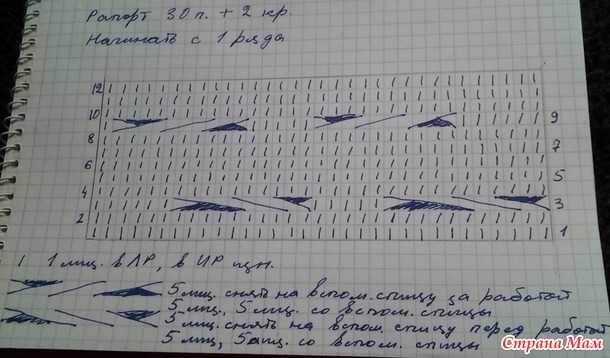 Рапорт 30 п. + 2 кр.
Начинать с 1 ряда
12
10 9
8 7
6 5
4 3
2 1
| 1 лиц. в ЛР, в ИР изн.
5 лиц. снять на вспом. спицу за работой
5 лиц., 5 лиц. со вспом. спицы
5 лиц. снять на вспом. спицу перед работой
5 лиц, 5 лиц. со вспом. спицы
Страна Мам